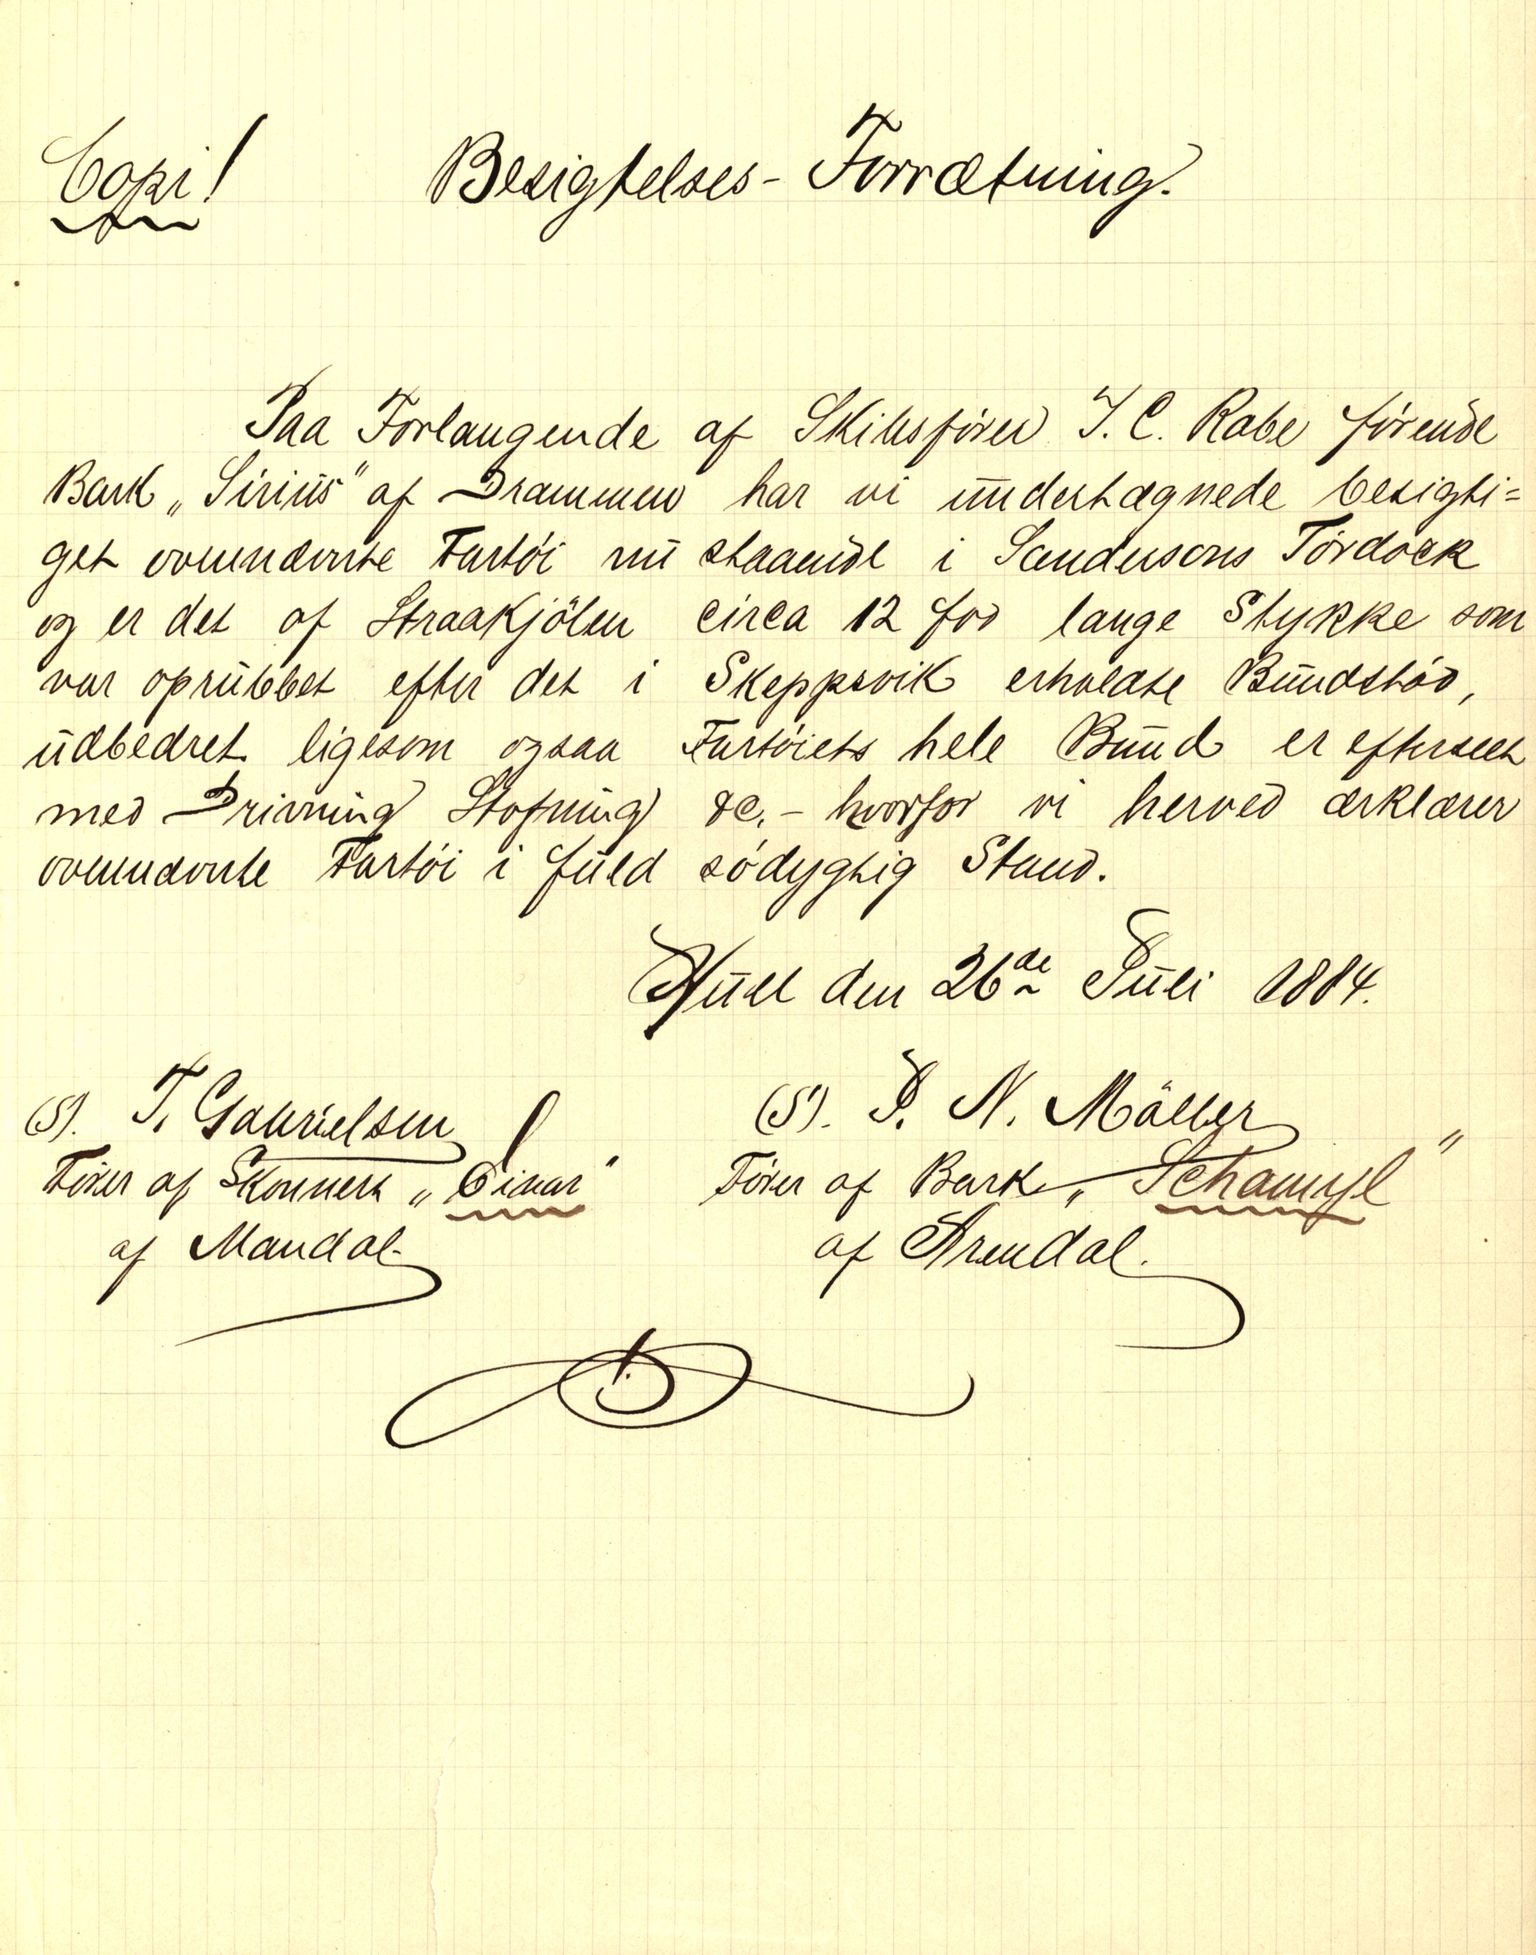 Copi!
Besigtelses-Forrætning.
Paa Forlangende af Skibsfører J. C. Rabe førende
Bark „Sirius" af Drammen har vi undertægnede besigti=
get ovennævnte Fartøi nu staaende i Sandersons Tørdock
og er det af Straakjölen circa 12 fod lange Stykke som
var oprubbet efter det i Skeppsvik erholdte Bundstød,
udbedret ligesom ogsaa Fartøiets hele Bund er efterseet
med Drivning Stopning &c. - hvorfor vi herved ærklærer
ovennævnte Fartøi i fuld sødygtig Stand.
Hull den 26de Juli 1884.
(S). T. Gabrielsen
Fører af Skonnert „Einar"
af Mandal
(S). J. N. Möller
Fører af Bark „Schamyl"
af Arendal.